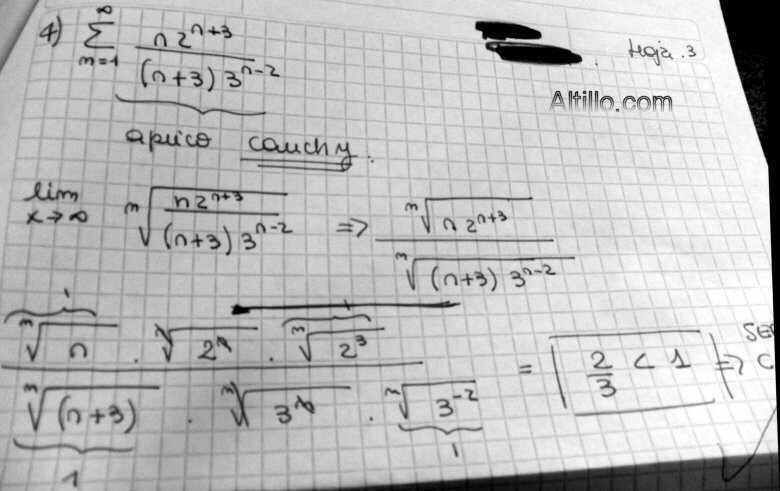 4) ∑_{n=1}^{∞} n2^{n+3} / (n+3) 3^{n-2}
Hoja 3
Altillo.com
aplico cauchy.
lim_{x→∞} ⁿ√(n2^{n+3} / (n+3) 3^{n-2}) => ⁿ√(n2^{n+3}) / ⁿ√((n+3) 3^{n-2})
1 1
ⁿ√n . ⁿ√2ⁿ . ⁿ√2³ / ⁿ√(n+3) . ⁿ√3ⁿ . ⁿ√3^{-2} = 2/3 < 1 =>
1 1